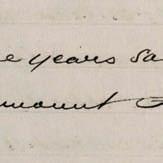 e years sa
amount